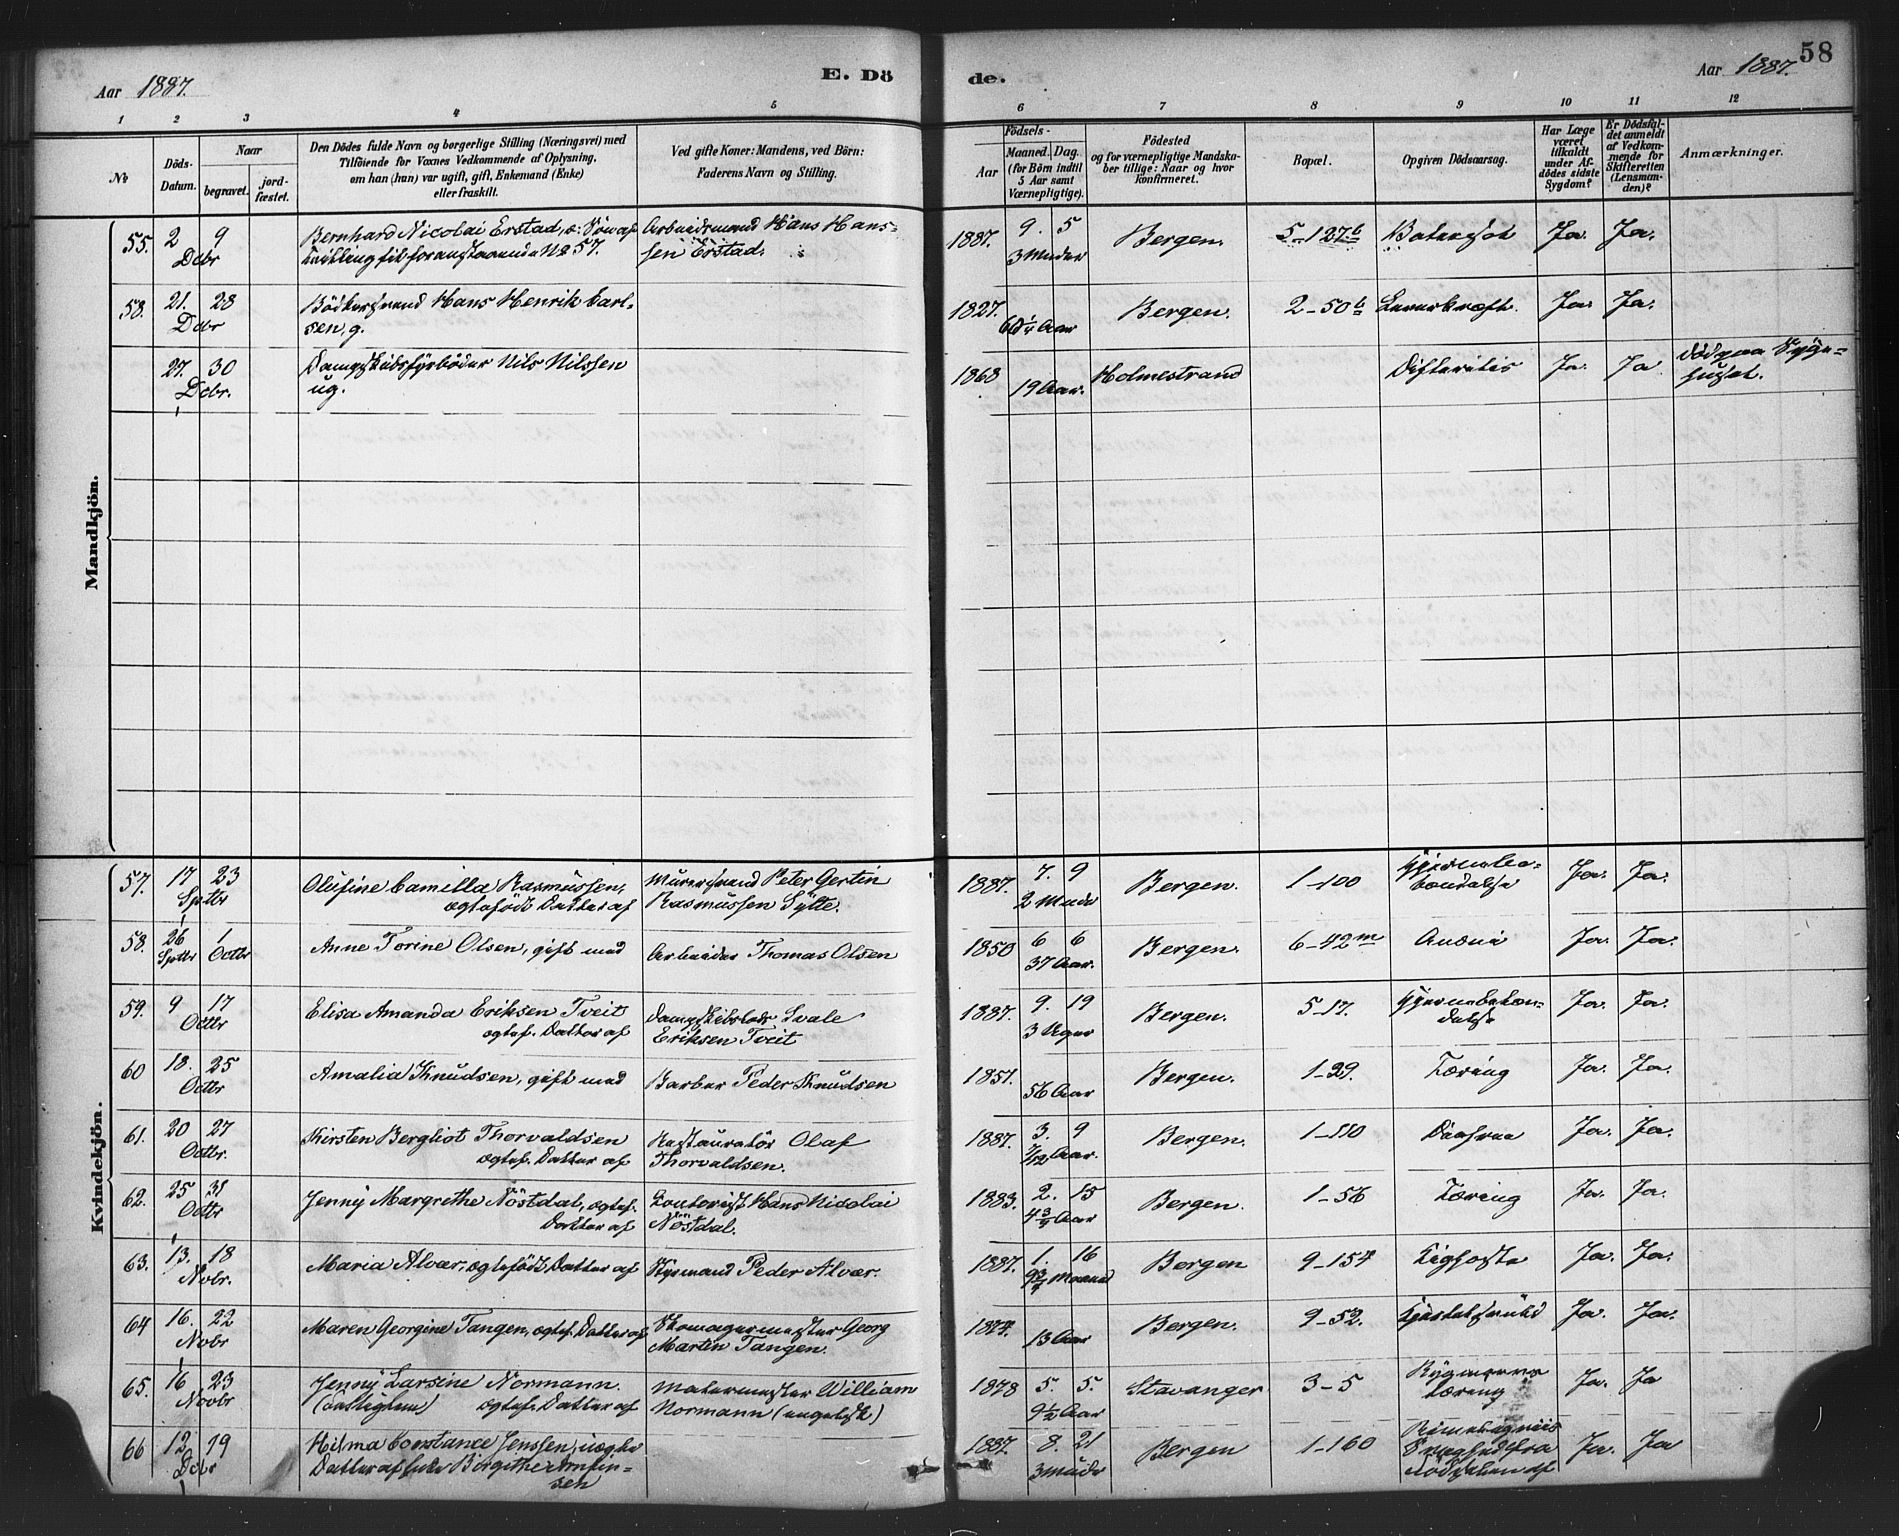 Aar 1887.
E. Dö
de.
Aar 1887.
58
1 2 3 4 5 6 7 8 9 10 11 12
No
Döds-
Datum.
Naar
begravet.
jord-
fæstet.
Den Dödes fulde Navn og borgerlige Stilling (Næringsvei) med
Tilföiende for Voxnes Vedkommende af Oplysning,
om han (hun) var ugift, gift, Enkemand (Enke)
eller fraskilt.
Ved gifte Koner: Mandens, ved Börn:
Faderens Navn og Stilling.
Födsels-
Aar
Maaned. Dag.
(for Börn indtil
5 Aar samt
Værnepligtige).
Födested
og for værnepligtige Mandska-
ber tillige: Naar og hvor
konfirmeret.
Bopæl.
Opgiven Dödsaarsag.
Har Læge
været
tilkaldt
under Af-
dödes sidste
Sygdom?
Er Dödsfal-
det anmeldt
af Vedkom-
mende for
Skifteretten
(Lensman-
den)?
Anmærkninger.
Mandkjön.
55. 2 9 Bernhard Nicolai Erstad, æ: Sön af Arbeidsmand Hans Hans- 1887. 9. 5 Bergen. 5-127 b Ja. Ja.
Dcbr No 57. sen Erstad. 3 Mndr
58. 21. 28 Bödkersvend Hans Henrik Carl- 1827. Bergen. 2-50 b Leverkræft. Ja. Ja.
Dcbr sen, g. 60 1/4 Aar
27. 30 Dampskibsfyrböder Nils Nilssen 1868 Holmestrand Difteritis Ja. Ja död paa Syge-
Dcbr. ug. 19 Aar. huset.
Kvindekjön.
57. 17 23 Olufine Camilla Rasmussen, Murersvend Peter Gertin 1887. 7. 9 Bergen. 1-100 Ja. Ja.
Sptbr ægtefödt Datter af Rasmussen Sylte. 2 Mndr
58. 26 1 Anne Torine Olsen, gift med Arbeider Thomas Olsen 1850 6 6 Bergen. 6-42 m Ja. Ja.
Sptbr Octbr 37 Aar.
59. 9 17 Elisa Amanda Eriksen Tveit Svale 1887. 9. 19 Bergen. 5-17. Ja. Ja.
Octbr ægtef. Datter af Eriksen Tveit 3 Uger
60 18. 25 Amalia Knudsen, gift med Barber Peder Knudsen 1851. Bergen. 1-29. Tæring Ja. Ja.
Octbr 56 Aar
61. 20 27 Kirsten Bergliot Thorvaldsen Restauratör Olaf 1887. 3. 9 Bergen. 1-110 Ja. Ja.
Octbr. ægtef. Datter af Thorvaldsen. 7/12 Aar.
62. 25 31 Jenny Margrethe Nöstdal, ægtef. Kontorist Hans Nicolai 1883. 2. 15 Bergen. 1-56 Tæring Ja. Ja.
Octbr Datter af Nöstdal. 4 3/4 Aar
63. 13. 18 Maria Alvær, ægtefödt Datter af Peder Alvær. 1887. 1. 16 Bergen 9-154 Kighoste Ja. Ja.
Novbr. 9 3/4 Maaned
64 16. 22 Maren Georgine Tangen, ægtef. Datter af Skomagermester Georg 1874. Bergen. 9-52. Ja. Ja.
Novbr Martin Tangen. 13 Aar
65. 16 23 Jenny Larsine Normann. William 1878 5. 5. Stavanger 3-5 Rygmarvs Ja. Ja
Novbr ægtef. Datter af Normann (engelsk) 9 1/2 Aar tæring
66 12. 19 Hilma Constance Jenssen, uægte 1887. 8. 21 Bergen 1-160 Ja. Ja
Dcbr Datter af 3 Mndr
sen